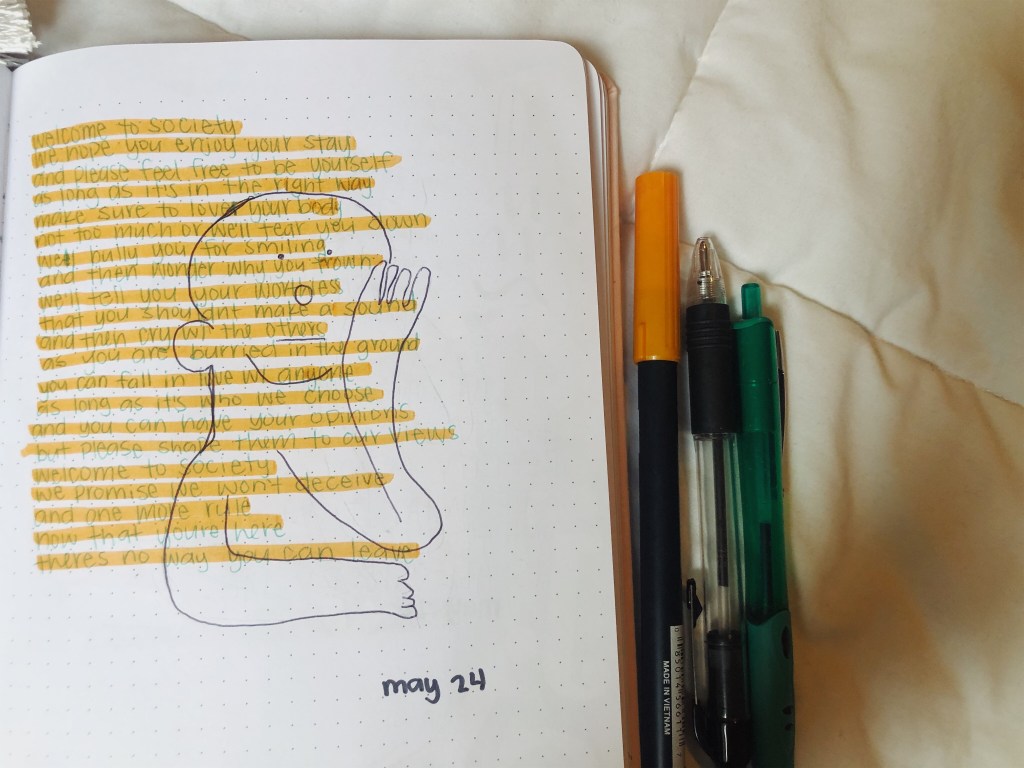 welcome to society
we hope you enjoy your stay
and please feel free to be yourself
as long as it's in the right way
make sure to love your body
not too much or we'll tear you down
we'll bully you for smiling
and then wonder why you frown
we'll tell you your worthless
that you shouldn't make a sound
and then cry w/ the others
as you are burried in the ground
you can fall in love w/ anyone
as long as it's who we choose
and you can have your opinions
but please shape them to our views
welcome to society
we promise we won't deceive
and one more rule
now that you're here
there's no way you can leave
may 24
MADE IN VIETNAM